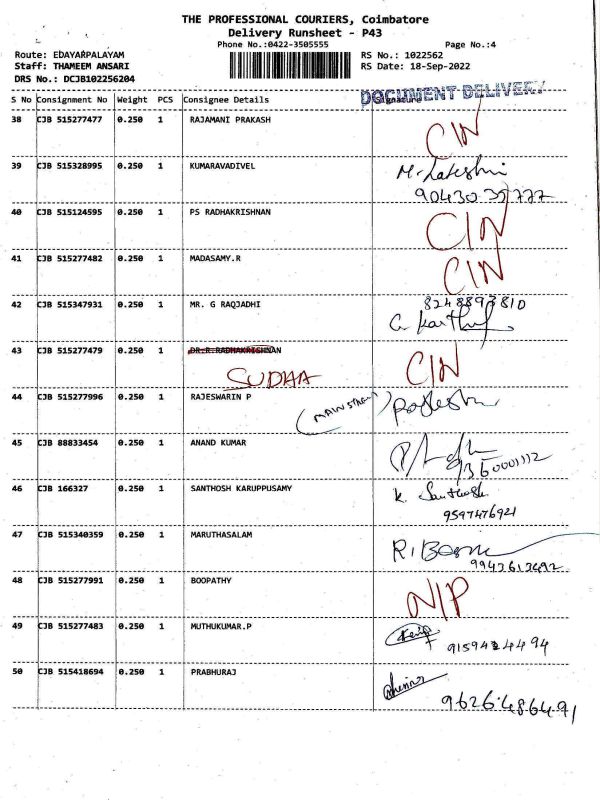 THE PROFESSIONAL COURIERS, Coimbatore
Delivery Runsheet - P43
Phone No.:0422-3505555 Page No.:4
Route: EDAYARPALAYAM RS No.: 1022562
Staff: THAMEEM ANSARI RS Date: 18-Sep-2022
DRS No.: DCJB102256204
DOCUMENT DELIVERY
S No Consignment No Weight PCS Consignee Details Signature
38 CJB 515277477 0.250 1 RAJAMANI PRAKASH CIN
39 CJB 515328995 0.250 1 KUMARAVADIVEL M.
40 CJB 515124595 0.250 1 PS RADHAKRISHNAN CIN
41 CJB 515277482 0.250 1 MADASAMY.R CIN
42 CJB 515347931 0.250 1 MR. G RAQJADHI 8248893810
43 CJB 515277479 0.250 1 DR.R.RADHAKRISHNAN CIN
SUDHA
44 CJB 515277996 0.250 1 RAJESWARIN P
45 CJB 88833454 0.250 1 ANAND KUMAR
46 CJB 166327 0.250 1 SANTHOSH KARUPPUSAMY K. Santhosh
9597476921
47 CJB 515340359 0.250 1 MARUTHASALAM
9943613492
48 CJB 515277991 0.250 1 BOOPATHY N/P
49 CJB 515277483 0.250 1 MUTHUKUMAR.P
50 CJB 515418694 0.250 1 PRABHURAJ
9626486491